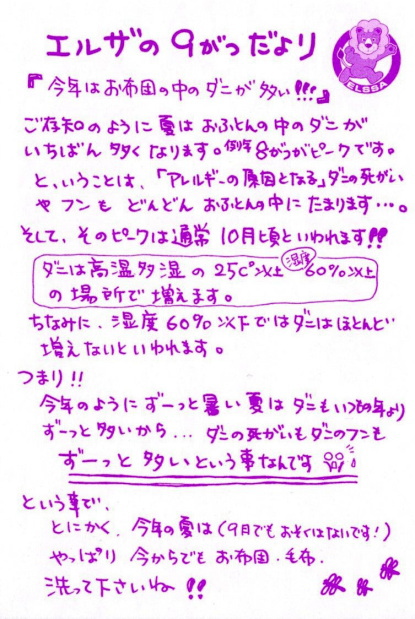 エルザの9がつだより
ELGSA
『今年はお布団の中のダニが多い!!!』
ご存知のように夏はおふとんの中のダニが
いちばん多くなります。例年8がつがピークです。
と、いうことは、「アレルギーの原因となる」ダニの死がい
やフンもどんどんおふとんの中にたまります…。
そして、そのピークは通常10月頃といわれます!!
ダニは高温多湿の25℃以上湿度60%以上
の場所で増えます。
ちなみに、湿度60%以下ではダニはほとんど
増えないといわれます。
つまり!!
今年のようにずーっと暑い夏はダニもいつもの年より
ずーっと多いから…ダニの死がいもダニのフンも
ずーっと多いという事なんです
という事で、
とにかく、今年の夏は(9月でもおそくはないです!)
やっぱり今からでもお布団・毛布・
洗って下さいね!!